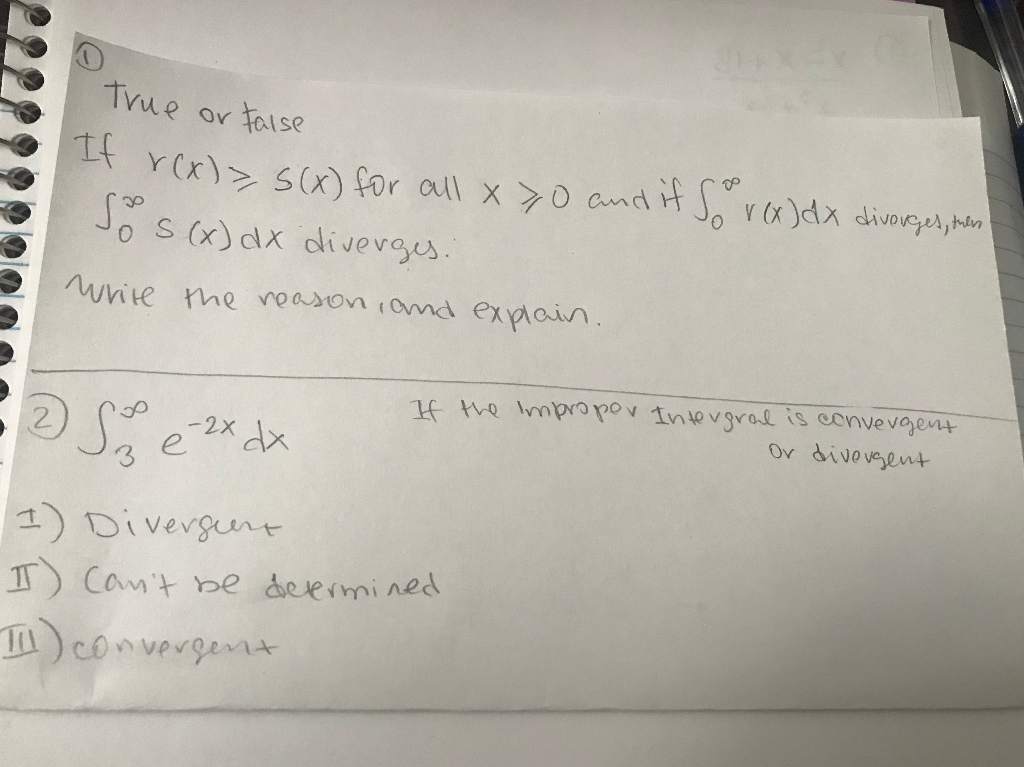 ①
True or false
If r(x) ⩾ s(x) for all x ⩾ 0 and if ∫₀^∞ r(x)dx diverges, then
∫₀^∞ s(x)dx diverges.
Write the reason, and explain.
② ∫₃^∞ e^-2x dx If the Improper Intergral is convergent
or divergent
I) Divergent
II) Can't be determined
III) convergent